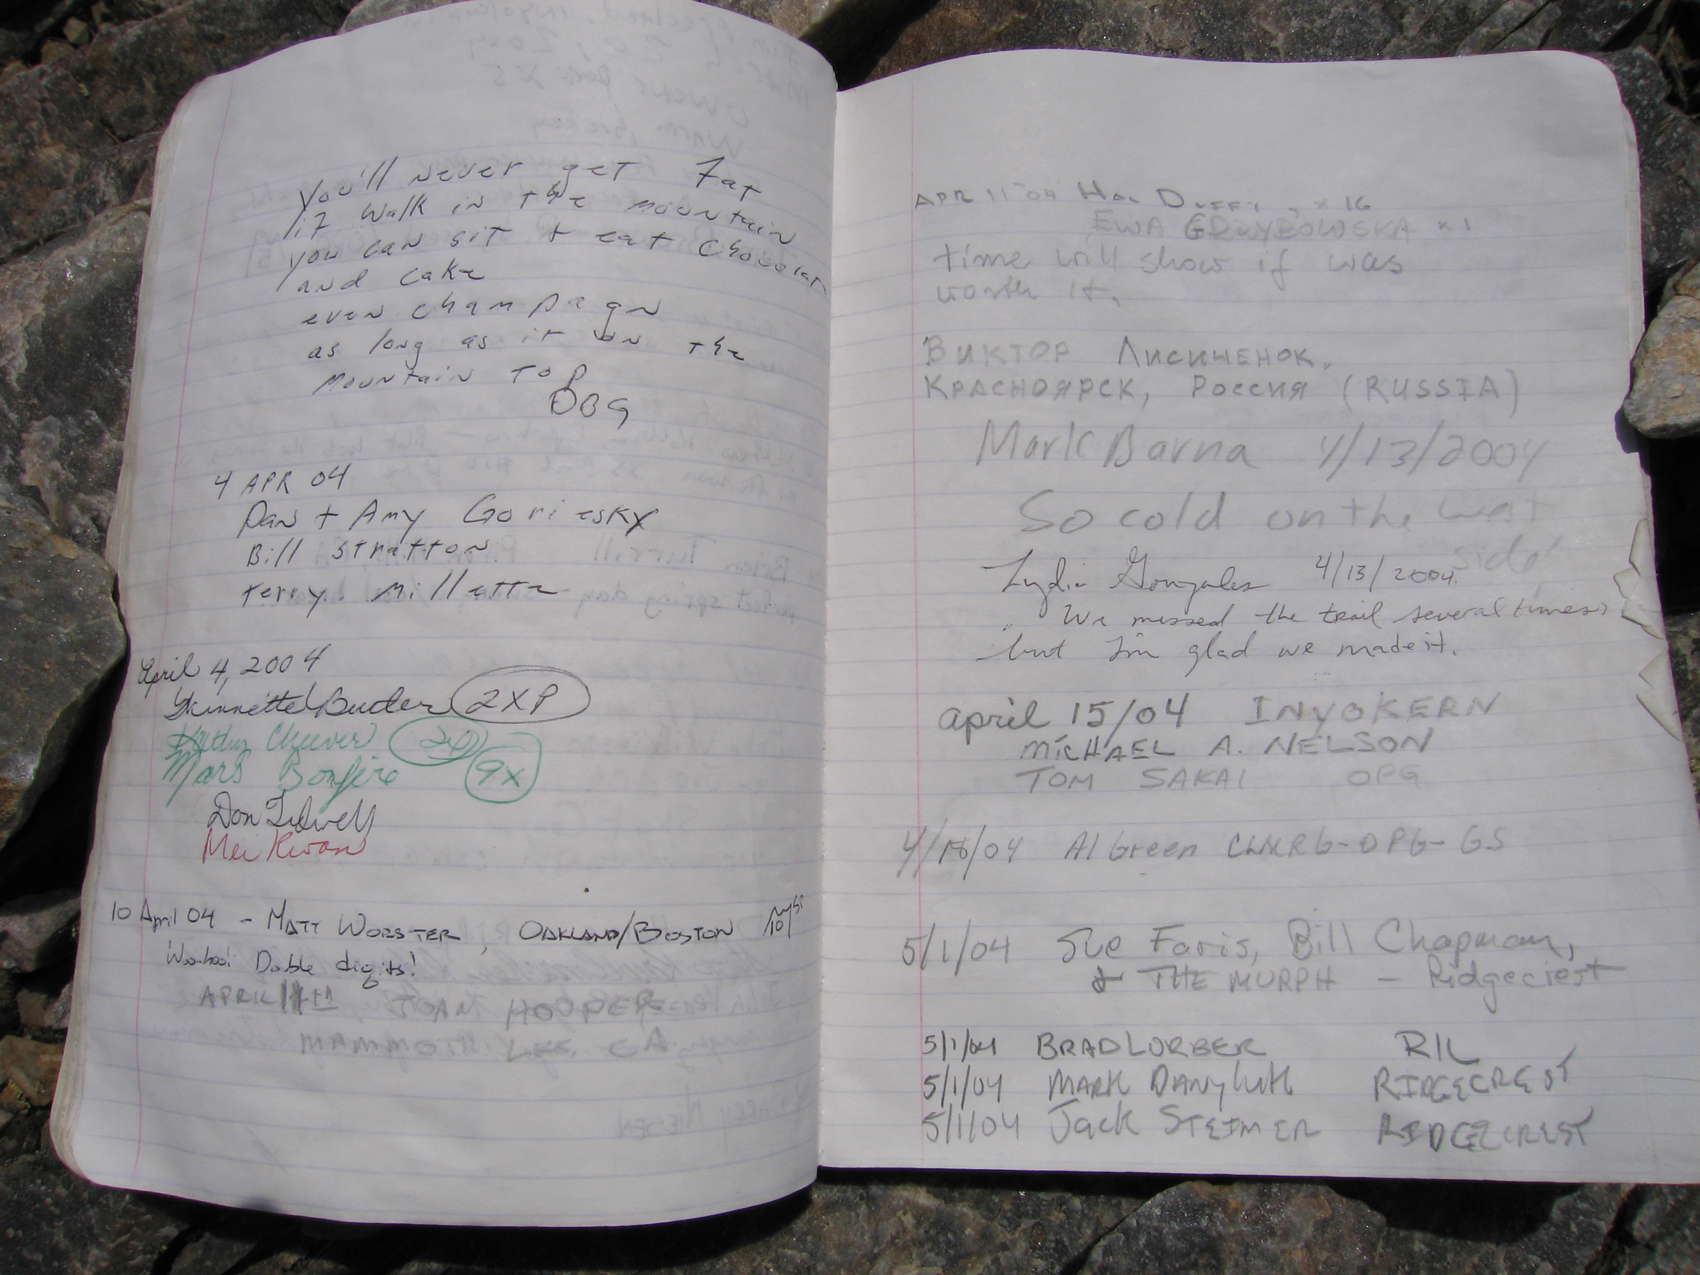 You'll never get Fat
if walk in the mountain
you can sit + eat chocolat
and cake
even champagn
as long as it on the
mountain top
DBG
4 APR 04
Dan + Amy Goriesky
Bill Stratton
Terry Millette
April 4, 2004
Butler 2XP
Kathy Cheever
Mars Bonfire 9X
Don Tidwell
Mei Kwan
10 April 04 - Matt Worster, Oakland/Boston
Woohoo! Double digits!
APRIL 11 JOAN HOOPER
MAMMOTH LKS, CA.
APR 11 '04 x 16
EWA x 1
time will show if was
worth it.
Виктор Лисиненок,
Красноярск, Россия (RUSSIA)
Mark Barna 4/13/2004
So cold on the west
side!
Lydia Gonzales 4/13/2004
We missed the trail several times,
but I'm glad we made it.
april 15/04 INYOKERN
MICHAEL A. NELSON
TOM SAKAI OPG
Al Green CLMRG-OPG-GS
5/1/04 Sue Faris, Bill Chapman,
& THE MURPH - Ridgecrest
5/1/04 BRAD LORBER R/C
5/1/04 MARK DANYLUK RIDGECREST
5/1/04 Jack STEIMER RIDGECREST